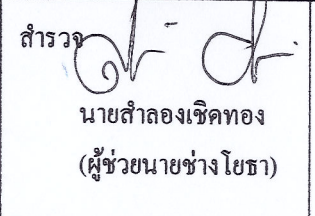 สำรวจ
นายสำลองเชิดทอง
(ผู้ช่วยนายช่างโยธา)